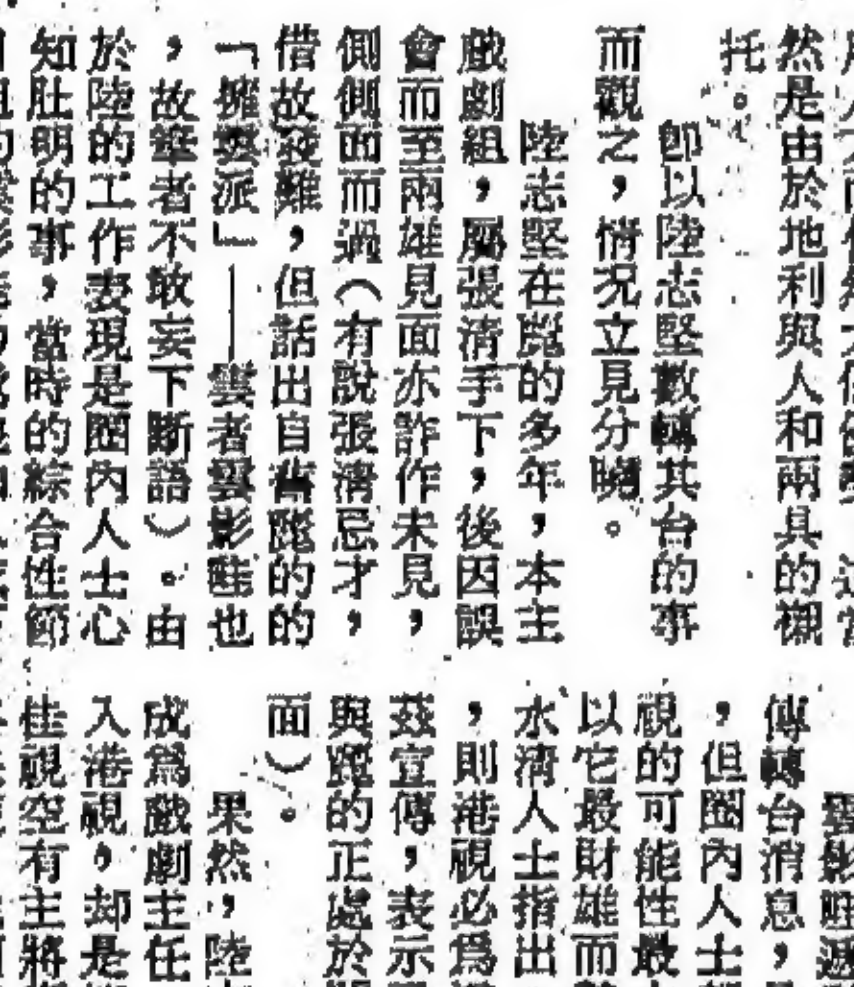 然是由於地利與人和兩具的襯
托。
即以陸志堅數轉其台的事
而觀之，情况立見分曉。
陸志堅在麗的多年，本主
戲劇組，屬張清手下，後因誤
會而至兩雄見面亦詐作未見，
側側面而過（有說張清忌才，
借故發難，但話出自舊麗的的
「擁雲派」——雲者雲影畦也
，故筆者不敢妄下斷語）。由
於陸的工作表現是圈內人士心
知肚明的事，當時的綜合性節
雲影畦
傳轉台消息，
，但圈內人士
視的可能性最
以它最財雄而
水濟人士指出
，則港視必爲
茲宣傳，表示
與麗的正處於
面）。
果然，陸
成爲戲劇主任
入港視，却是
佳視空有主將